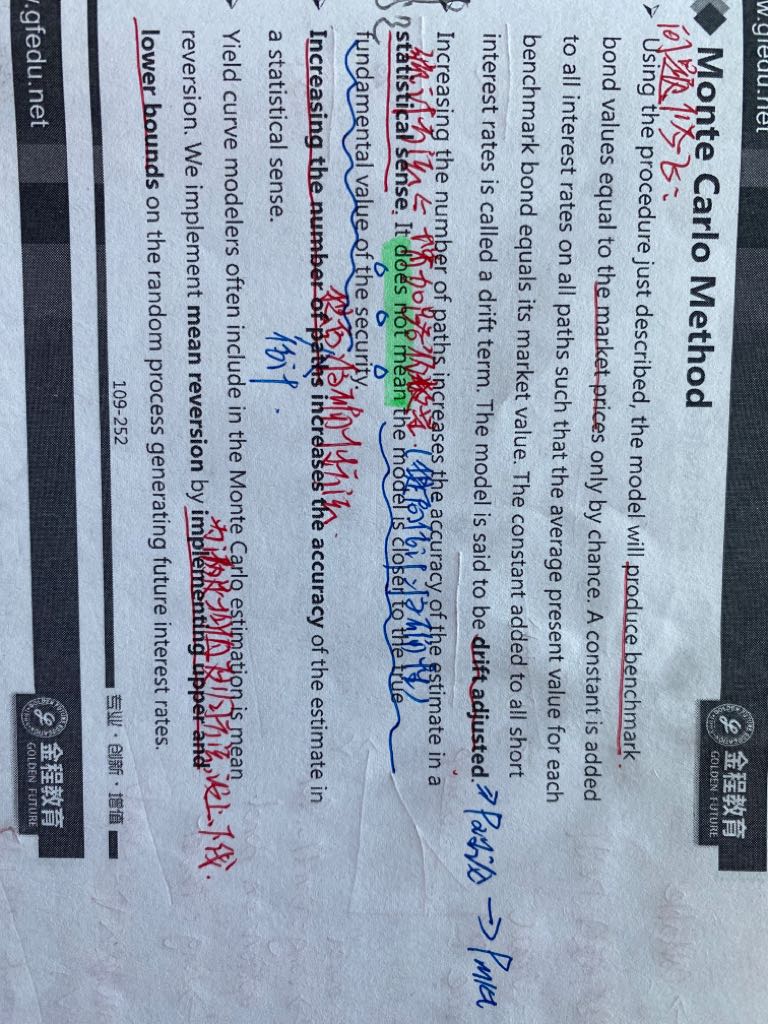 w.gfedu.net
Monte Carlo Method
金程教育
GOLDEN FUTURE
问题修正:
Using the procedure just described, the model will produce benchmark
bond values equal to the market prices only by chance. A constant is added
to all interest rates on all paths such that the average present value for each
benchmark bond equals its market value. The constant added to all short
interest rates is called a drift term. The model is said to be drift adjusted.
→ Pmkt
Increasing the number of paths increases the accuracy of the estimate in a
statistical sense. It does not mean the model is closer to the true
fundamental value of the security.
Increasing the number of paths increases the accuracy of the estimate in
a statistical sense.
估计.
Yield curve modelers often include in the Monte Carlo estimation is mean
reversion. We implement mean reversion by implementing upper and
lower bounds on the random process generating future interest rates.
109-252
专业·创新·增值
w.gfedu.net
金程教育
GOLDEN FUTURE